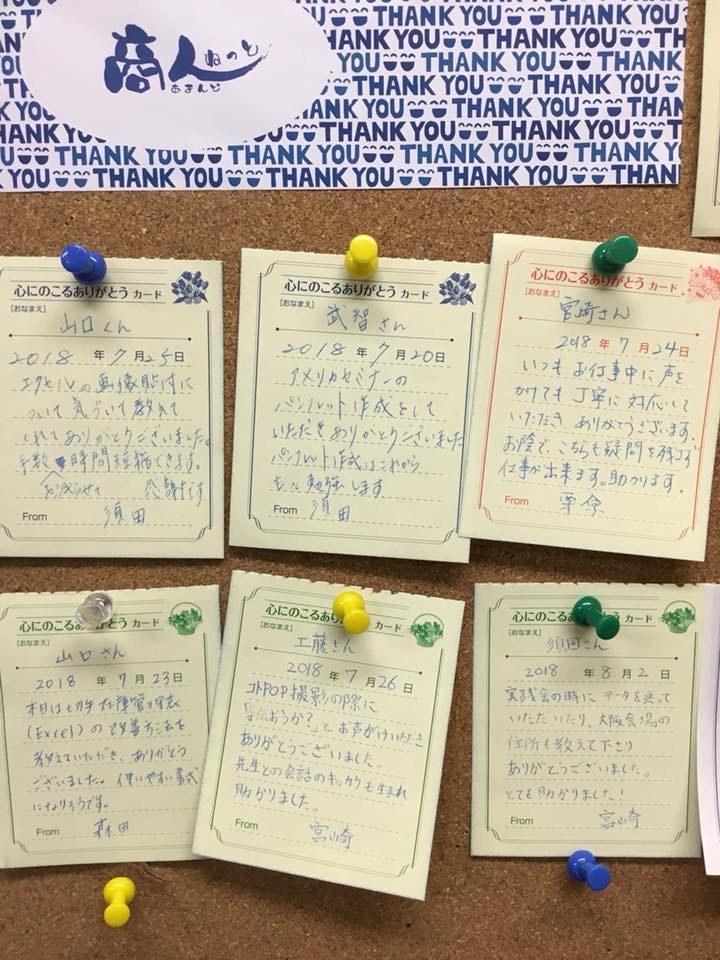 THANK YOU THANK YOU THANK YOU
商人ねのと
あきんど
心にのこるありがとう カード
[おなまえ]
山口くん
2018 年 7 月 25 日
エクセルの画像貼付に
ついて気づいて教えて
くれてありがとうございました。
手数 時間短縮できます。
を減らせて 感謝です
From 須田
心にのこるありがとう カード
[おなまえ]
武智さん
2018 年 7 月 20 日
アメリカセミナーの
パンフレット作成をして
いただきありがとうございました
パンフレット作成はこれから
もっと勉強します
From 須田
心にのこるありがとう カード
[おなまえ]
宮崎さん
2018 年 7 月 24 日
いつもお仕事中に声を
かけても丁寧に対応して
いただき ありがとうございます。
お陰で、こちらも疑問を残さず
仕事が出来ます。助かります。
From
心にのこるありがとう カード
[おなまえ]
山口さん
2018 年 7 月 23 日
本日は 在庫管理表
(Excel)の改善方法を
教えていただき、ありがとう
ございました。使いやすい書式
になりそうです。
From 森田
心にのこるありがとう カード
[おなまえ]
工藤さん
2018 年 7 月 26 日
コトPOP撮影の際に
「手伝おうか?」とお声がけいただき
ありがとうございました。
先生との会話のキッカケも生まれ
助かりました。
From 宮崎
心にのこるありがとう カード
[おなまえ]
須田さん
2018 年 8 月 2 日
実践会の時にデータを送って
いただいたり、大阪会場の
住所も教えて下さり
ありがとうございました。
とても助かりました!
From 宮崎